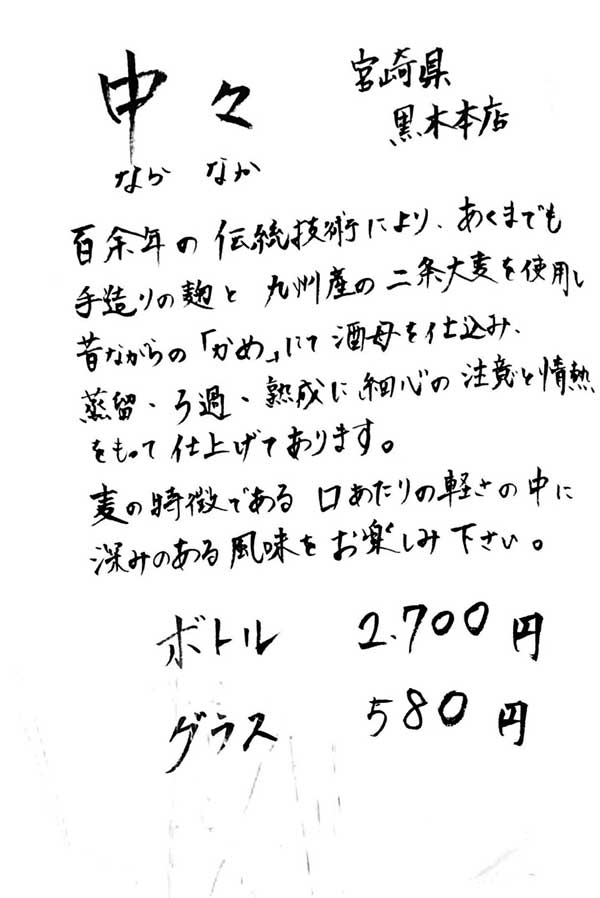 中々
なかなか
宮崎県
黒木本店
百余年の伝統技術により、あくまでも
手造りの麹と九州産の二条大麦を使用し
昔ながらの「かめ」にて酒母を仕込み、
蒸留・ろ過・熟成に細心の注意と情熱
をもって仕上げてあります。
麦の特徴である口あたりの軽さの中に
深みのある風味をお楽しみ下さい。
ボトル 2.700円
グラス 580円